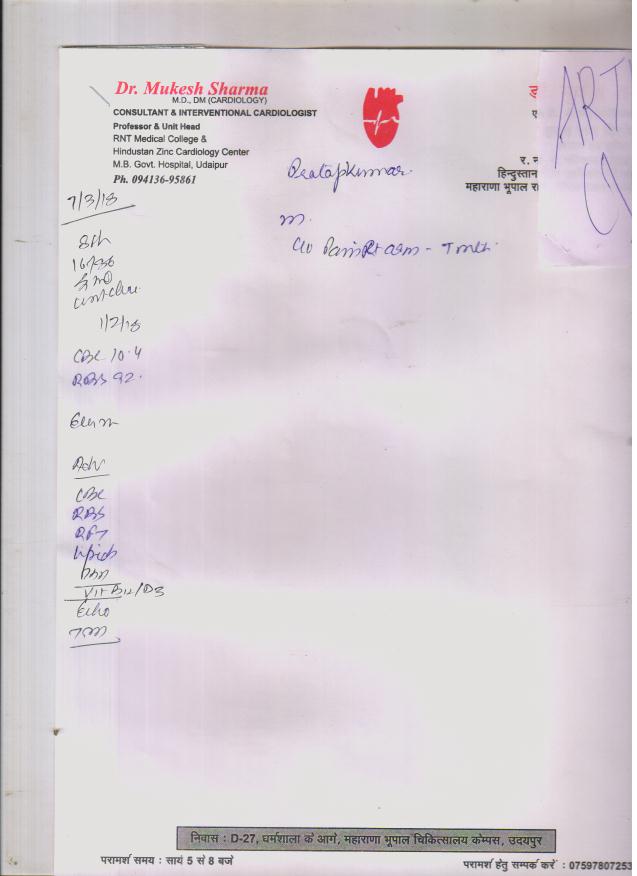 Dr. Mukesh Sharma
M.D., DM (CARDIOLOGY)
CONSULTANT & INTERVENTIONAL CARDIOLOGIST
Professor & Unit Head
RNT Medical College &
Hindustan Zinc Cardiology Center
M.B. Govt. Hospital, Udaipur
Ph. 094136-95861
र. न
हिन्दुस्तान
महाराणा भूपाल रा
ART
Pratapkumar
7/3/18
m.
1/2/18
CBC 10.4
RBS 92.
Adv
CBC
RBS
RFT
Lipids
Vit B12/D3
Echo
निवास : D-27, धर्मशाला के आगे, महाराणा भूपाल चिकित्सालय केम्पस, उदयपुर
परामर्श समय : सायं 5 से 8 बजे
परामर्श हेतु सम्पर्क करें : 07597807253